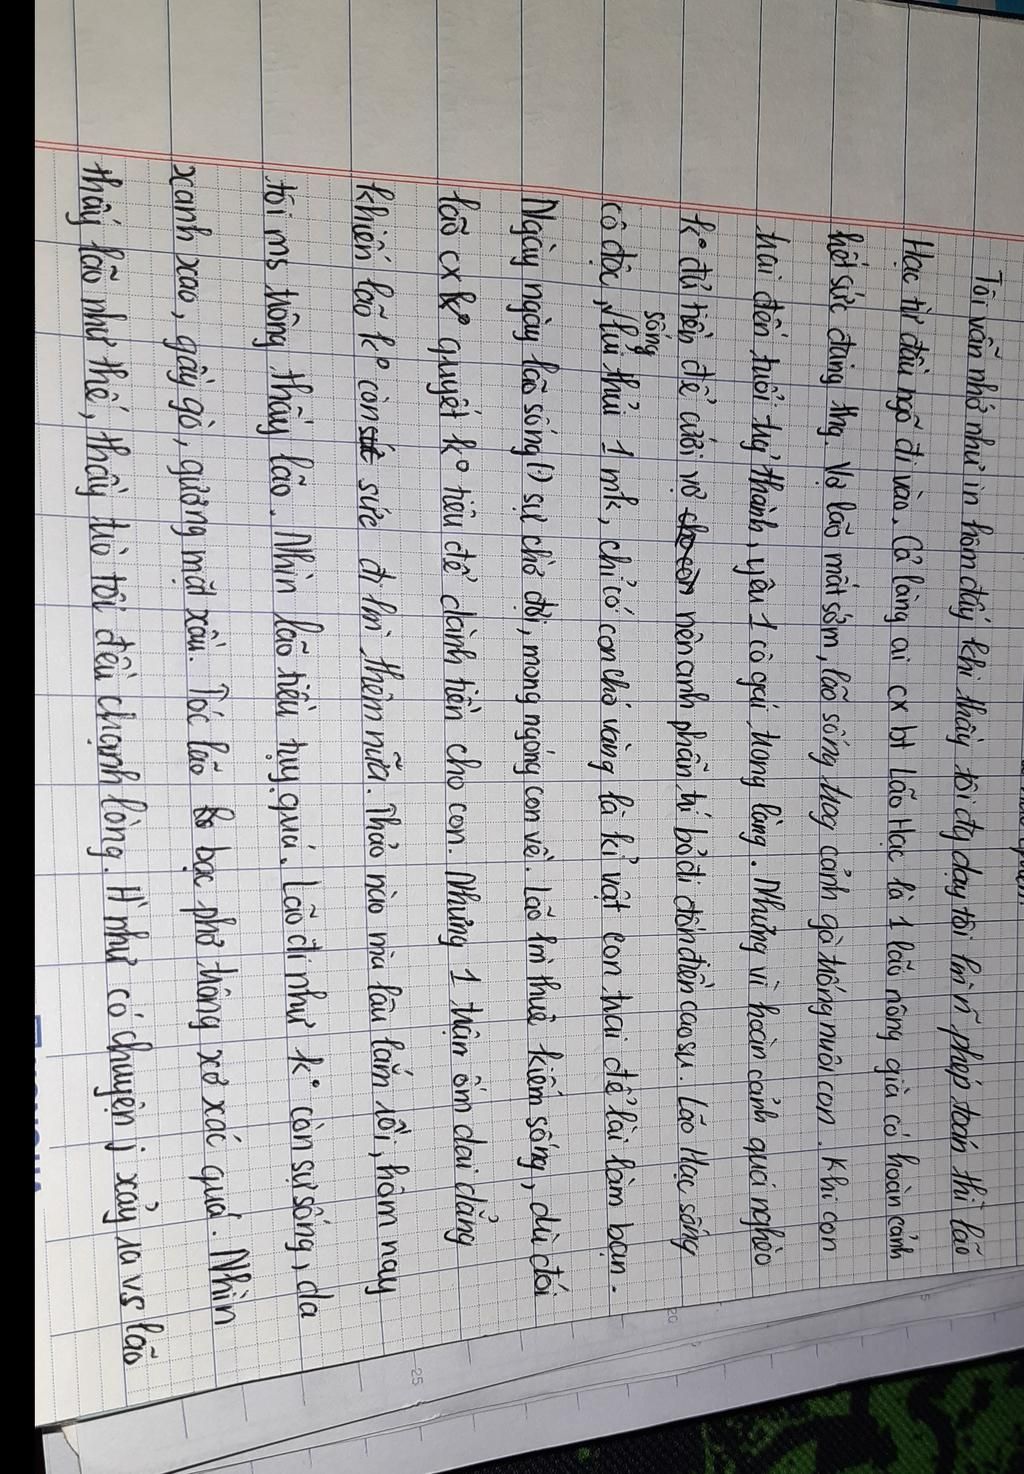 Tôi vẫn nhớ như in hôm đấy khi thầy tôi đg dạy tôi lm phép toán thì lão
Hạc từ đầu ngõ đi vào. Cả làng ai cx bt Lão Hạc là 1 lão nông già có hoàn cảnh
hết sức đáng thg. Vợ lão mất sớm, lão sống trog cảnh gà trống nuôi con. Khi con
trai đến tuổi trg thành, yêu 1 cô gái trong làng. Nhưng vì hoàn cảnh quá nghèo
k° đủ tiền để cưới vợ nên anh phẫn trí bỏ đi đồn điền cao su. Lão Hạc sống
cô độc, sống lủi thủi 1 mk, chỉ có con chó vàng là kỉ vật con trai để lại làm bạn.
Ngày ngày lão sống (1) sự chờ đợi, mong ngóng con về. Lão lm thuê kiếm sống, dù đói
lão cx k° quyết k° tiêu để dành tiền cho con. Nhưng 1 trận ốm dai dẳng
khiến lão k° còn sức đi lm thêm nữa. Thảo nào mà lâu lắm rồi, hôm nay
tôi ms trông thấy lão. Nhìn lão tiều tụy quá. Lão đi như k° còn sự sống, da
xanh xao, gầy gò, gương mặt xấu. Tóc lão bạc phơ trông xơ xác quá. Nhìn
thấy lão như thế, thầy tôi đều chạnh lòng. H như có chuyện j xảy ra vs lão